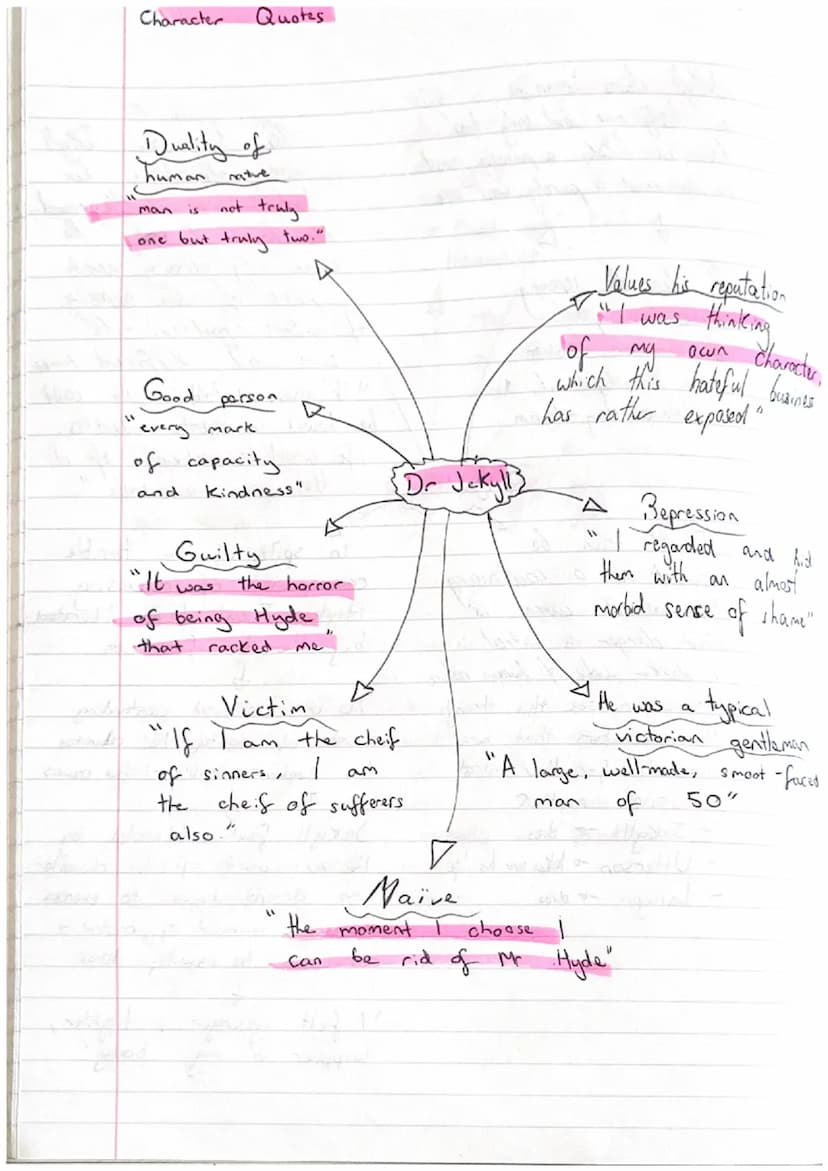 Character Quotes
Duality of
human native
"man is not truly
one but truly two."
Values his reputation
"I was thinking
of my own character,
which this hateful busines
has rather exposed"
Good person
"every mark
of capacity
and kindness"
Dr Jekyll
Repression
"I regarded and hid
them with an almost
morbid sense of shame"
Guilty
"It was the horror
of being Hyde
that racked me"
Victim
"If I am the cheif
of sinners, I am
the cheif of sufferers
also."
He was a typical
victorian gentleman
"A large, well-made, smoot-faced
man of 50"
Naïve
"the moment I choose I
can be rid of Mr Hyde"